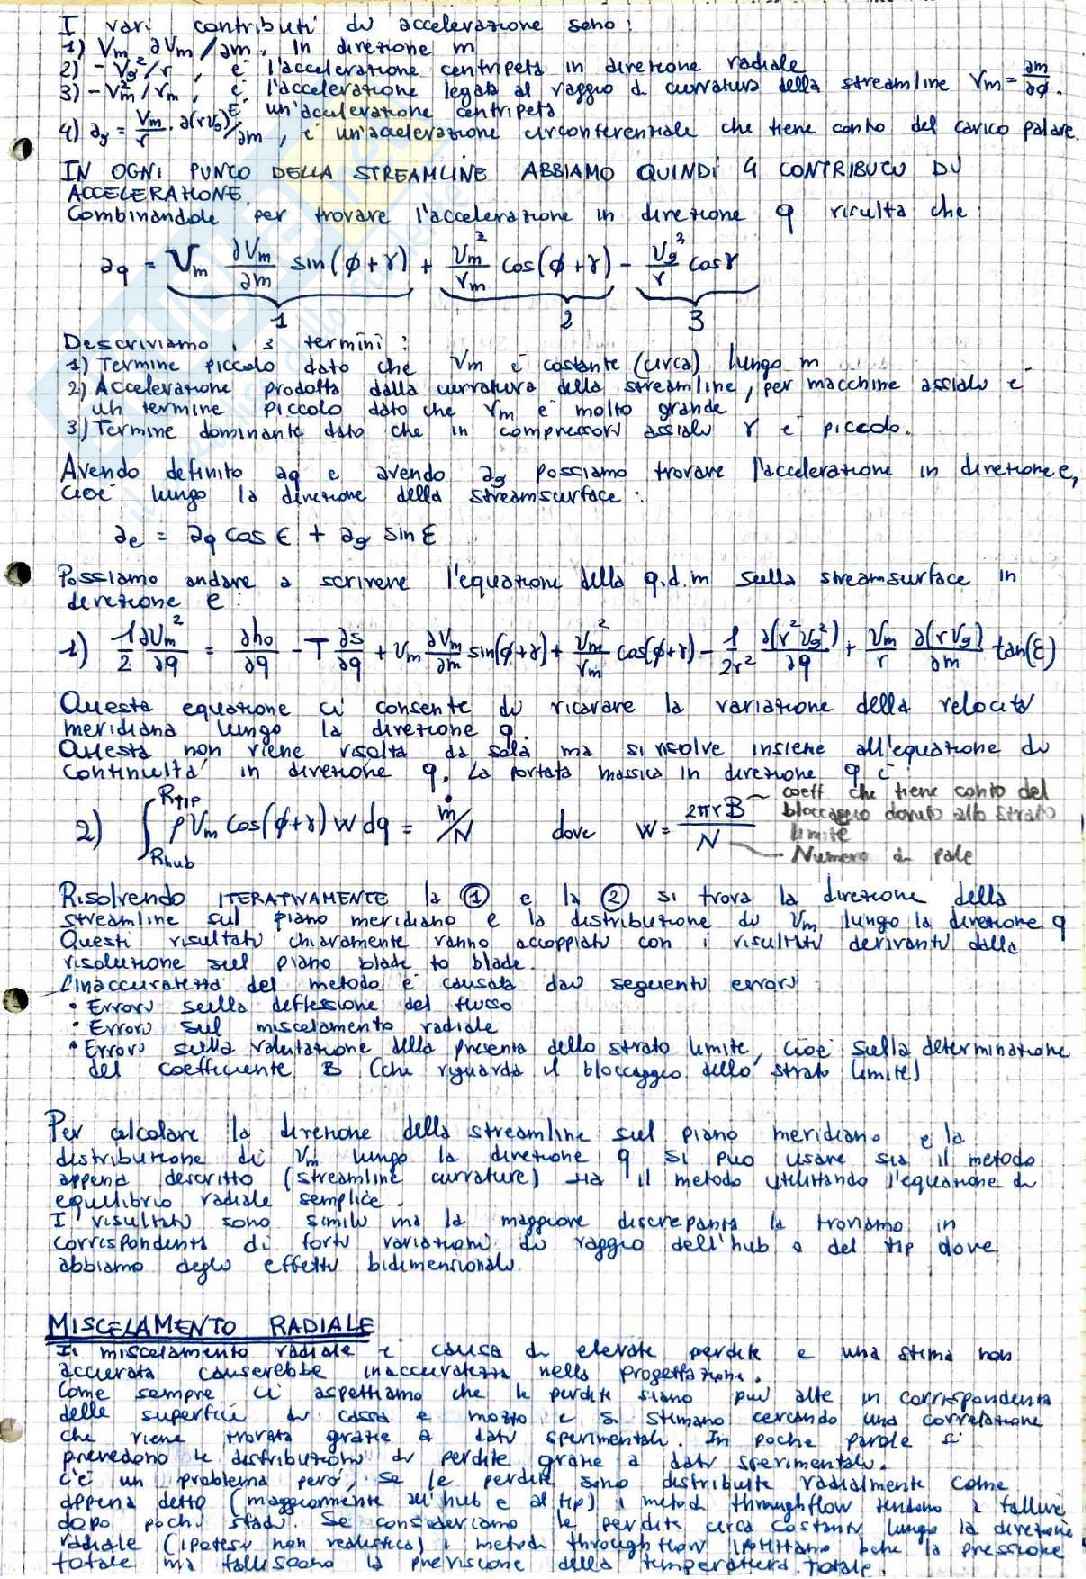 I vari contributi di accelerazione sono:
1) Vm ∂Vm/∂m, in direzione m
2) - Vθ²/r, è l'accelerazione centripeta in direzione radiale
3) - Vm²/rm, è l'accelerazione legata al raggio di curvatura della streamline rm = ∂m/∂φ.
È un'accelerazione centripeta
4) aθ = Vm/r · ∂(rVθ)/∂m, è un'accelerazione circonferenziale che tiene conto del carico palare.
IN OGNI PUNTO DELLA STREAMLINE ABBIAMO QUINDI 4 CONTRIBUTI DI
ACCELERAZIONE.
Combinandole per trovare l'accelerazione in direzione q risulta che:
aq = Vm ∂Vm/∂m sin(φ+γ) + Vm²/rm cos(φ+γ) - Vθ²/r cosγ
1 2 3
Descriviamo i 3 termini:
1) Termine piccolo dato che Vm è costante (circa) lungo m
2) Accelerazione prodotta dalla curvatura della streamline, per macchine assiali è
un termine piccolo dato che rm è molto grande
3) Termine dominante dato che in compressori assiali γ è piccolo.
Avendo definito aq e avendo aθ possiamo trovare l'accelerazione in direzione e,
cioè lungo la direzione della streamsurface:
ae = aq cos ε + aθ sin ε
Possiamo andare a scrivere l'equazione della q.d.m sulla streamsurface in
direzione e
1) 1/2 ∂Vm²/∂q = ∂h0/∂q - T ∂s/∂q + Vm ∂Vm/∂m sin(φ+γ) + Vm²/rm cos(φ+γ) - 1/2r² ∂(r²Vθ²)/∂q + Vm/r ∂(rVθ)/∂m tan(ε)
Questa equazione ci consente di ricavare la variazione della velocità
meridiana lungo la direzione q.
Questa non viene risolta da sola ma si risolve insieme all'equazione di
continuità in direzione q. La portata massica in direzione q è:
2) ∫Rhub^Rtip ρVm cos(φ+γ) W dq = ṁ/N dove W = 2πrB/N
coeff che tiene conto del
bloccaggio dovuto allo strato
limite
Numero di pale
Risolvendo ITERATIVAMENTE la ① e la ② si trova la direzione della
streamline sul piano meridiano e la distribuzione di Vm lungo la direzione q
Questi risultati chiaramente vanno accoppiati con i risultati derivanti dalla
risoluzione sul piano blade to blade.
L'inaccuratezza del metodo è causata dai seguenti errori:
• Errori sulla deflessione del flusso
• Errori sul miscelamento radiale
• Errori sulla valutazione della presenza dello strato limite, cioè sulla determinazione
del coefficiente B (che riguarda il bloccaggio dello strato limite)
Per calcolare la direzione della streamline sul piano meridiano e la
distribuzione di Vm lungo la direzione q si può usare sia il metodo
appena descritto (streamline curvature) sia il metodo utilizzando l'equazione di
equilibrio radiale semplice.
I risultati sono simili ma la maggiore discrepanza la troviamo in
corrispondenza di forti variazioni di raggio dell'hub o del tip dove
abbiamo degli effetti bidimensionali.
MISCELAMENTO RADIALE
Il miscelamento radiale è causa di elevate perdite e una stima non
accurata causerebbe inaccuratezza nella progettazione.
Come sempre ci aspettiamo che le perdite siano più alte in corrispondenza
delle superfici di cassa e mozzo e si stimano cercando una correlazione
che viene trovata grazie a dati sperimentali. In poche parole si
prevedono le distribuzioni di perdite grazie a dati sperimentali.
C'è un problema però, se le perdite sono distribuite radialmente come
appena detto (maggiormente all'hub e al tip) i metodi throughflow tendono a fallire
dopo pochi stadi. Se consideriamo le perdite circa costanti lungo la direzione
radiale (ipotesi non realistica) i metodi throughflow la pressione
totale ma falliscono la previsione della temperatura totale.